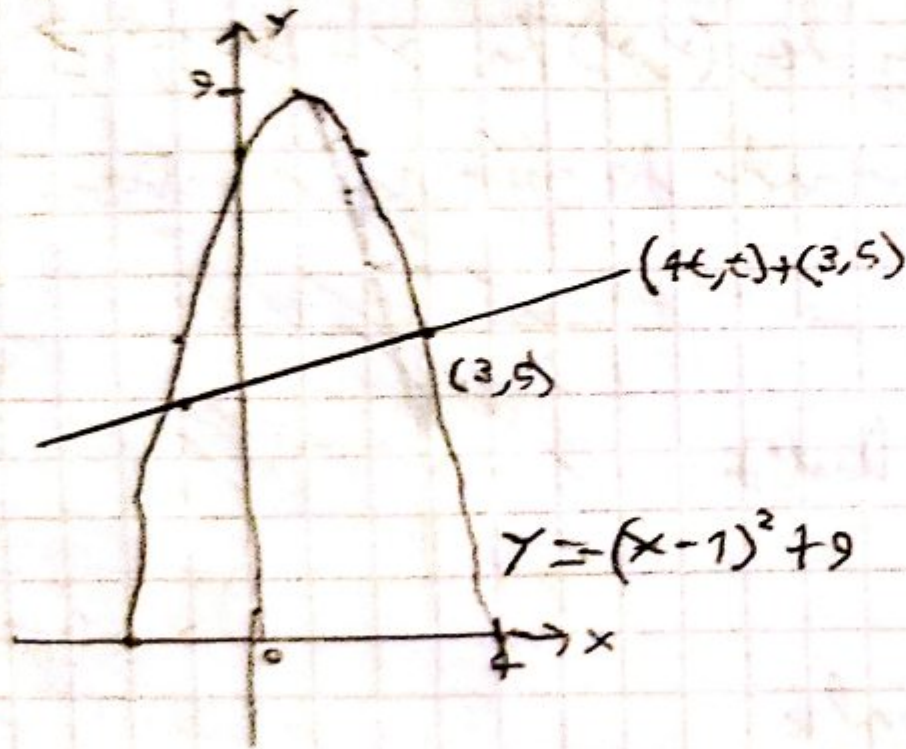 Y
9
(4t,t)+(3,5)
(3,5)
Y=-(x-1)²+9
0
4
X